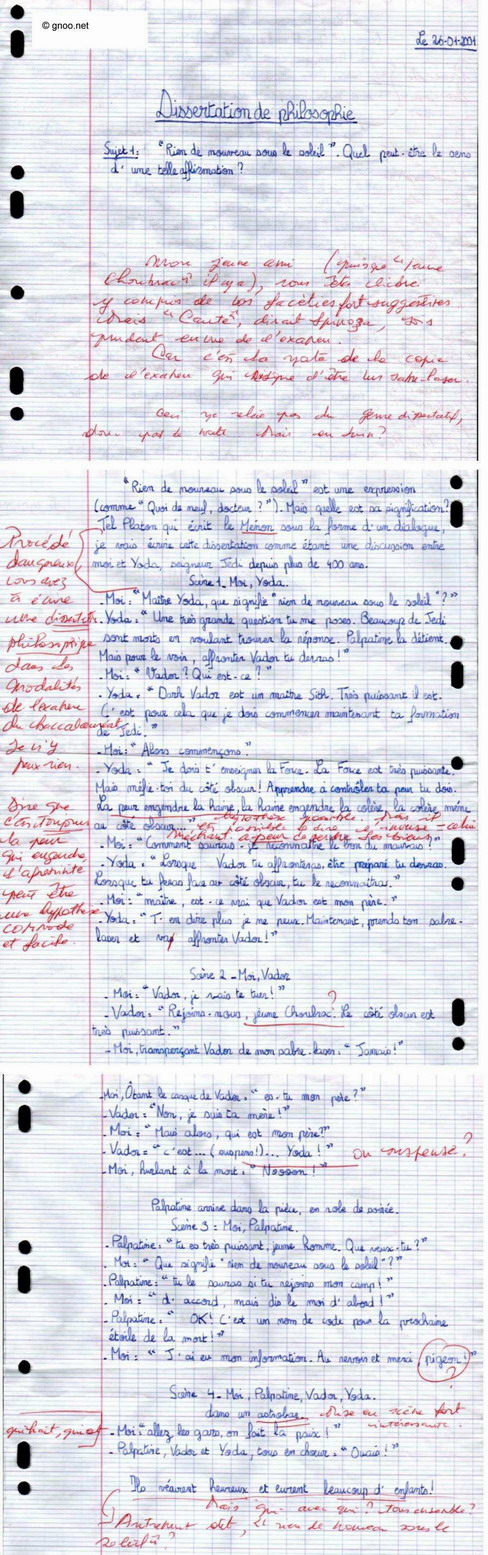 © gnoo.net
Le 26-01-2001
Dissertation de philosophie
Sujet 1 : "Rien de nouveau sous le soleil". Quel peut-être le sens
d'une telle affirmation ?
Mon jeune ami (puisque "jeune
Choubrac" il y a), vous êtes libre
y compris de vos facéties fort suggestives
Mais "Caute", dirait Spinoza, soyez
prudent en vue de l'examen.
Car c'est la note de la copie
de l'examen qui d'être un sabre-laser.
Ceci ne relève pas du genre dissertatif,
donc pas de note. Mais en suis ?
"Rien de nouveau sous le soleil" est une expression
(comme "Quoi de neuf, docteur ?"). Mais quelle est sa signification ?
Tel Platon qui écrit le Menon sous la forme d'un dialogue,
je vais écrire cette dissertation comme étant une discussion entre
moi et Yoda, seigneur Jedi depuis plus de 400 ans.
Procédé
dangereux,
vous avez
à écrire
une dissertation
philosophique
dans les
modalités
de l'examen
du baccalauréat
Je n'y
peux rien.
Scène 1 - Moi, Yoda.
- Moi : "Maître Yoda, que signifie "rien de nouveau sous le soleil" ?"
- Yoda : "Une très grande question tu me poses. Beaucoup de Jedi
sont morts en voulant trouver la réponse. Palpatine la détient.
Mais pour le voir, affronter Vador tu devras !"
- Moi : "Vador ? Qui est-ce ?"
- Yoda : "Dark Vador est un maître Sith. Très puissant il est.
C'est pour cela que je dois commencer maintenant ta formation
de Jedi."
- Moi : "Alors commençons."
- Yoda : "Je dois t'enseigner la Force. La Force est très puissante.
Mais méfie-toi du côté obscur ! Apprendre à contrôler ta peur tu dois.
La peur engendre la haine, la haine engendre la colère, la colère mène
au côté obscur..."
hypothèse possible. Mais il
est possible de dire l'inverse - celui
méchant a peur de perdre
Dire que
c'est toujours
la peur
qui engendre
l'agressivité
peut être
une hypothèse
commode
et facile.
- Moi : "Comment saurais-je reconnaître le bon du mauvais ?"
- Yoda : "Lorsque Vador tu affronteras, être préparé tu devras.
Lorsque tu feras face au côté obscur, tu le reconnaîtras."
- Moi : "maître, est-ce vrai que Vador est mon père."
- Yoda : "T'en dire plus je ne peux. Maintenant, prends ton sabre-
laser et va affronter Vador !"
Scène 2 - Moi, Vador
- Moi : "Vador, je vais te tuer !"
- Vador : "Rejoins-nous, jeune Choubrac. Le côté obscur est
très puissant."
?
- Moi, transperçant Vador de mon sabre-laser : "Jamais !"
- Moi, Ôtant le casque de Vador : "es-tu mon père ?"
- Vador : "Non, je suis ta mère !"
- Moi : "Mais alors, qui est mon père ?"
- Vador : "c'est... (suspens!)... Yoda !"
ou suspense ?
- Moi, hurlant à la mort : "Nooooon !"
Palpatine arrive dans la pièce, en robe de soirée.
Scène 3 : Moi, Palpatine.
- Palpatine : "tu es très puissant, jeune homme. Que veux-tu ?"
- Moi : "Que signifie "rien de nouveau sous le soleil" ?"
- Palpatine : "tu le sauras si tu rejoins mon camp !"
- Moi : "d'accord, mais dis le moi d'abord !"
- Palpatine : "OK ! C'est un nom de code pour la prochaine
étoile de la mort !"
- Moi : "J'ai eu mon information. Au revoir et merci pigeon !"
?
Scène 4 - Moi, Palpatine, Vador, Yoda.
dans un astrobar...
Mise en scène fort
intéressante.
- Moi : "allez les gars, on fait la paix !"
- Palpatine, Vador et Yoda, tous en chœur : "Ouais !"
Ils vécurent heureux et eurent beaucoup d'enfants !
Mais qui avec qui ? Tous ensemble ?
Autrement dit, "rien de nouveau sous le
soleil" ?